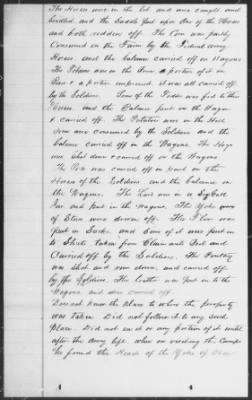 The Horses were in the lot and was caught and
bridled and the Saddle put upon One of the Horses
and both ridden off. The Corn was partly
Consumed on the Farm by the Federal army
Horses and the balance carried off in wagons
The Potatoes are in the House a portion of it in
a portion it was all carried off
by the Soldiers Some of the Fodder was fed to their
Horses and the Balance put in the Wagon
& carried off. The Potatoes were in the Hill
Some was consumed by the Soldiers and the
balance carried off in the Wagons. The Hogs
were Shot down & carried off in the Wagons
The was carried off in part on the
Horses of the Soldiers and the balance in
the Wagons. The Lard was in a
Jar and put in the Wagons. The Yoke
of Oxen were driven off. The Flour was
put in Sacks and Some of it was put in
taken from and
Carried off by the Soldiers. The Poultry
was Shot and run down and carried off
by the Soldiers. The was put in the
Wagons and carried off
Does not know the Place to where the property
was taken Did not follow it to any such
Place Did not see it or any portion of it until
after the Army left when on visiting the Camps
he found the Heads of the Yoke of Oxen